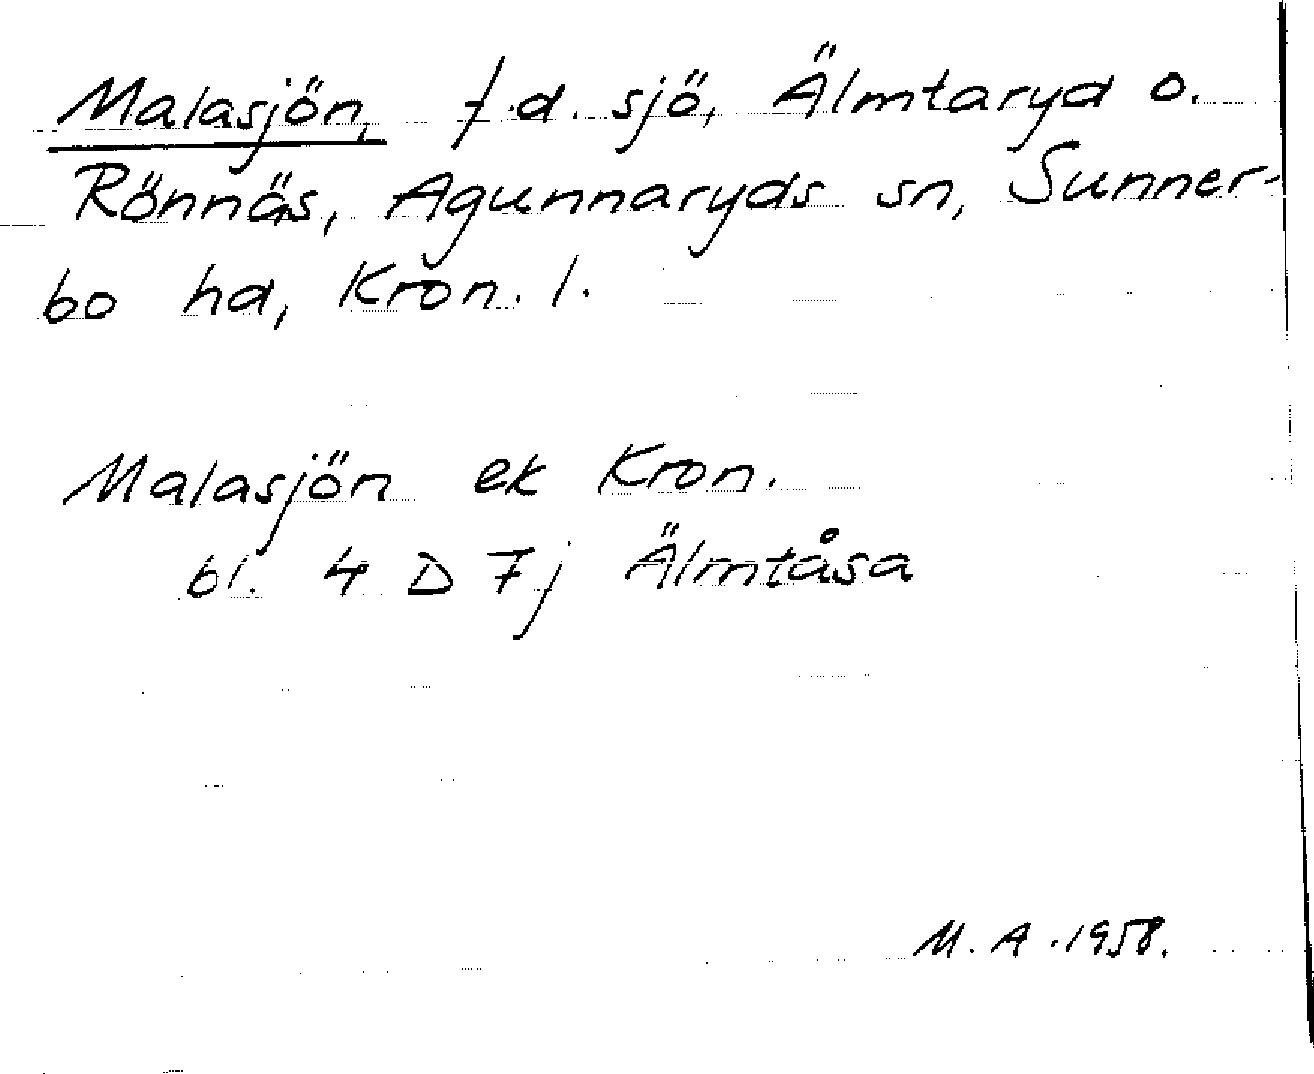 Malasjön, f.d. sjö, Älmtaryd o.
Rönnäs, Agunnaryds sn, Sunner-
bo hd, Kron. l.
Malasjön ek Kron.
bl. 4 D 7j Älmtåsa
M. A. 1958.